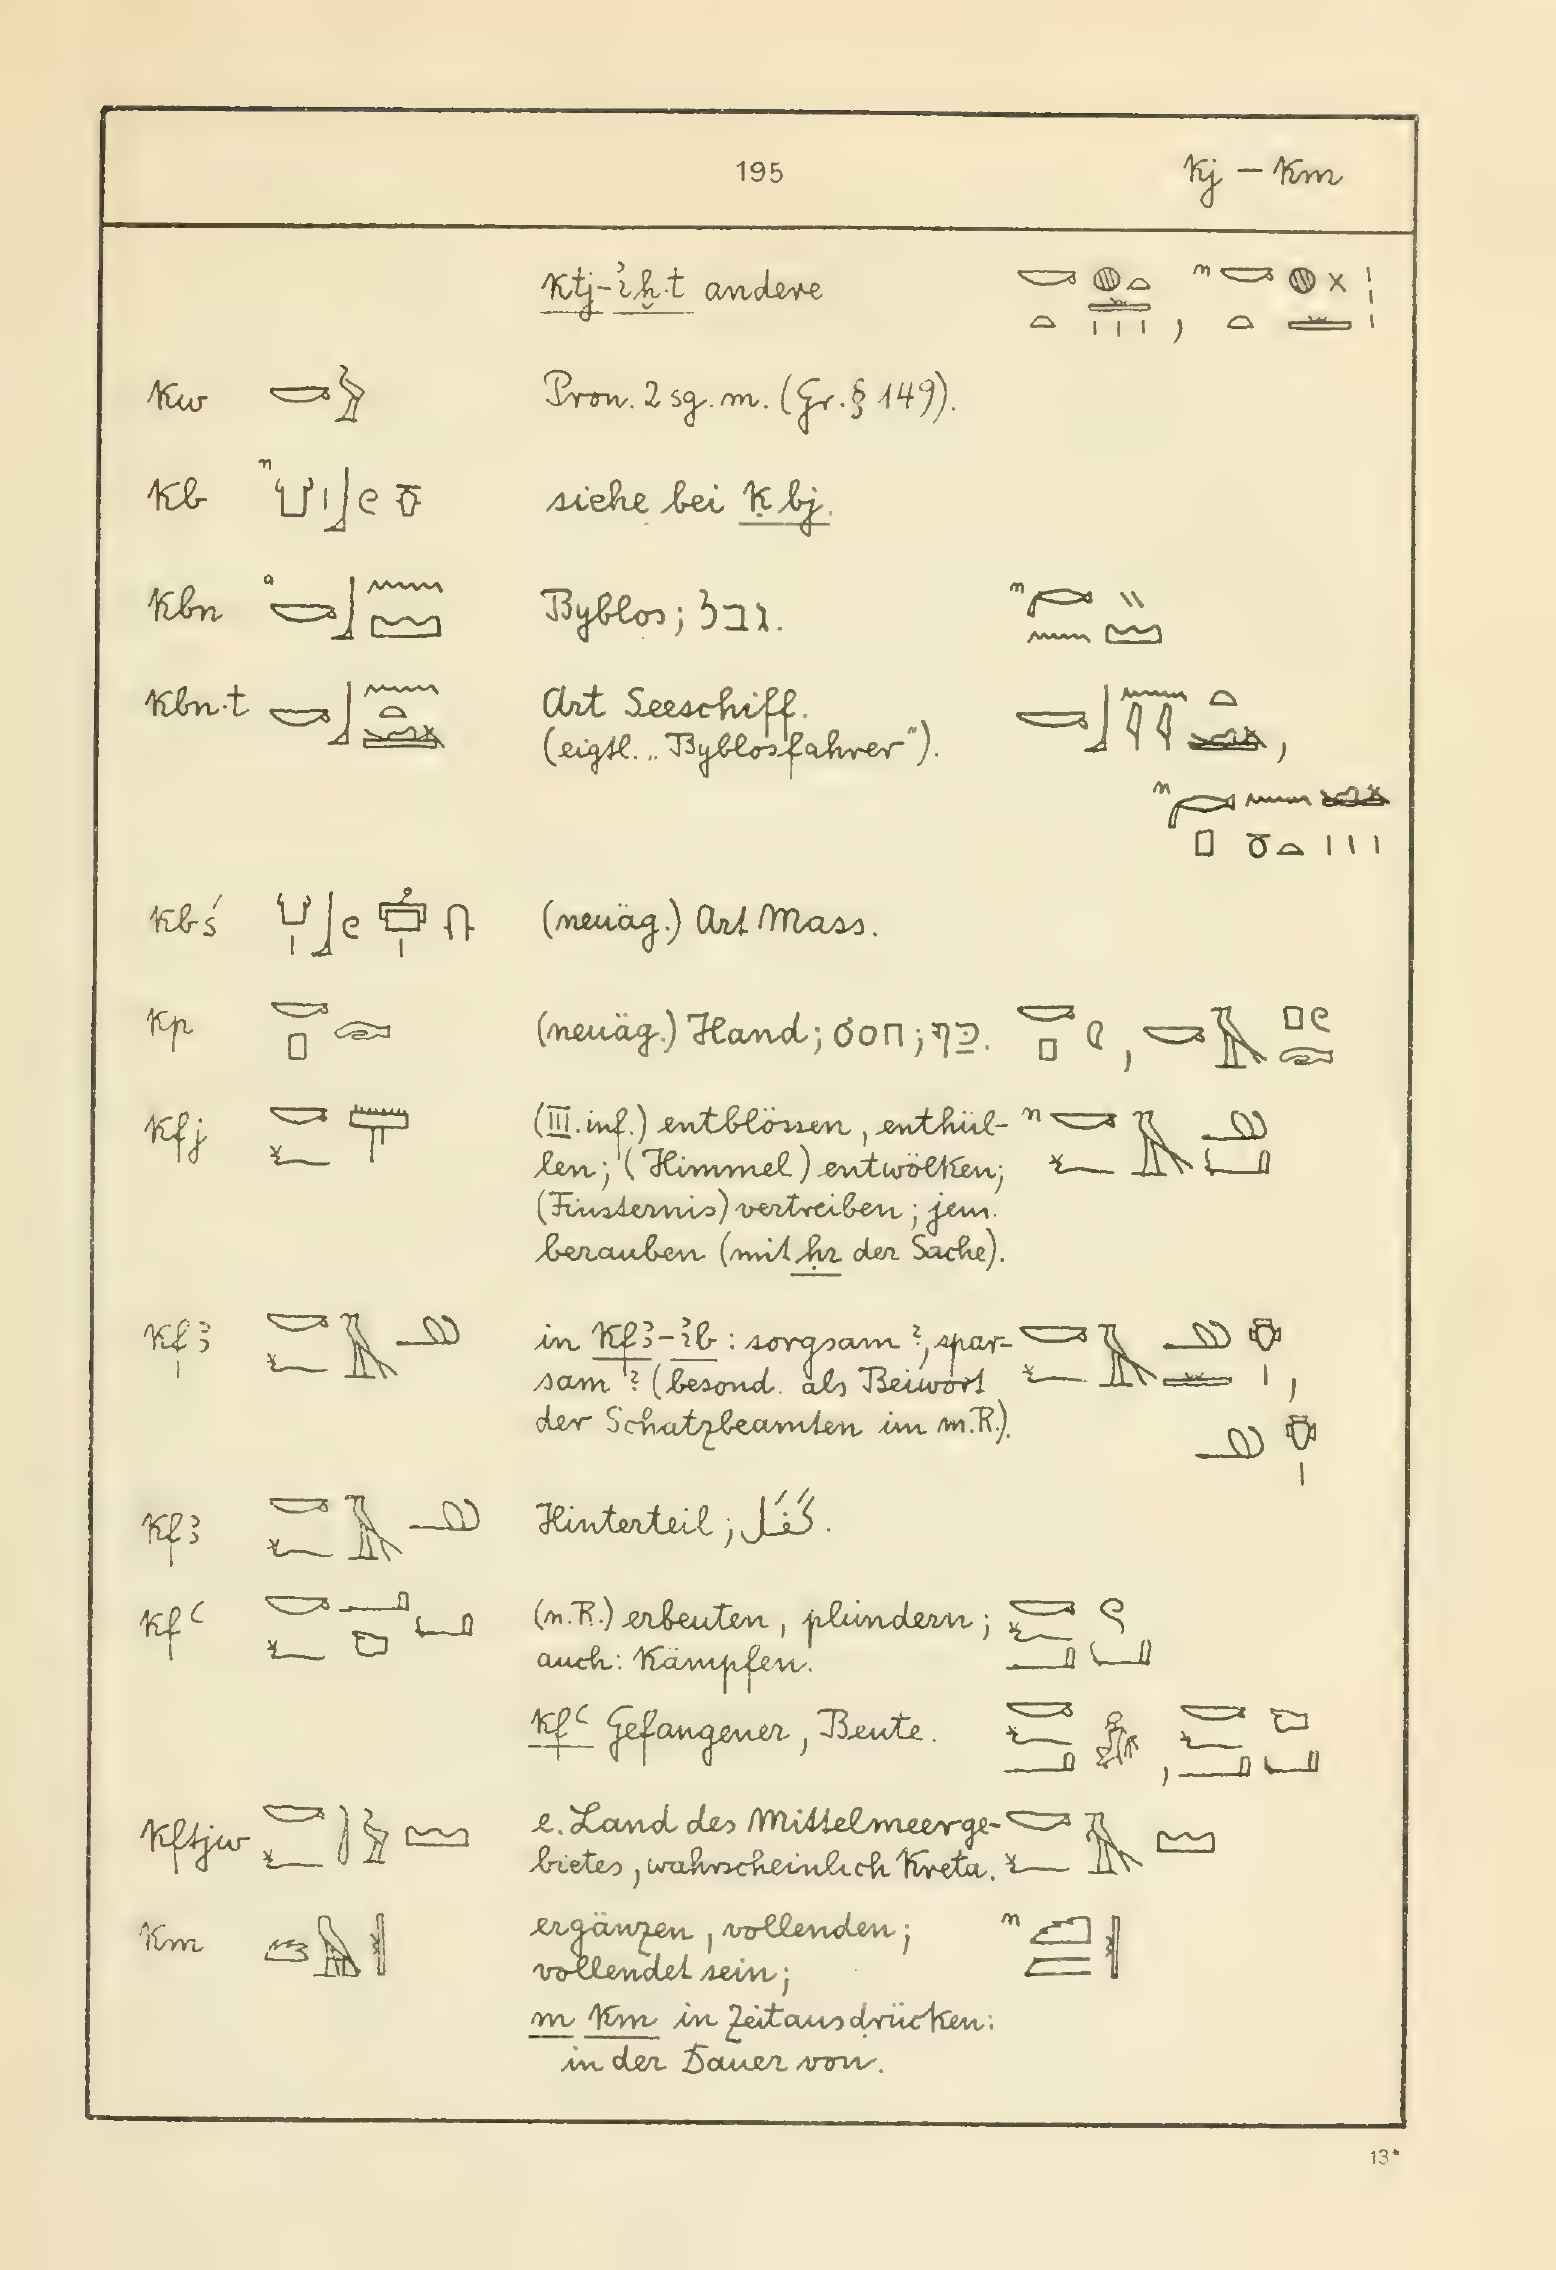 195 kj – km
ktj-ꞽḫ·t andere
kw Pron. 2 sg. m. (Gr. § 149).
kb n siehe bei ḳbj.
kbn a Byblos; גבל. n
kbn·t Art Seeschiff.
(eigtl. „Byblosfahrer").
n
kbś (neuäg.) Art Mass.
kp (neuäg.) Hand; ϭοπ; כַּף.
kfj (III. inf.) entblössen, enthül- n
len; (Himmel) entwölken;
(Finsternis) vertreiben; jem.
berauben (mit ḥr der Sache).
kfꜣ in kfꜣ-ꞽb: sorgsam?, spar-
sam? (besond. als Beiwort
der Schatzbeamten im m.R.).
kfꜣ Hinterteil; كَفَل.
kfꜥ (n.R.) erbeuten, plündern;
auch: kämpfen.
kfꜥ Gefangener, Beute.
kftjw e. Land des Mittelmeerge-
bietes, wahrscheinlich Kreta.
km ergänzen, vollenden; n
vollendet sein;
m km in Zeitausdrücken:
in der Dauer von.
13*